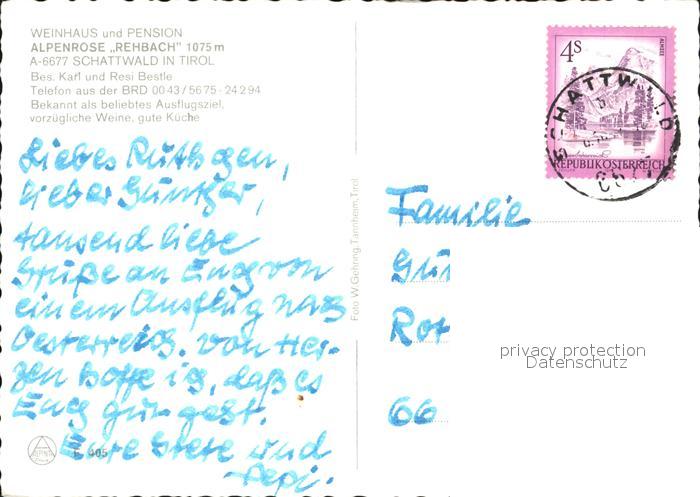 WEINHAUS und PENSION
ALPENROSE „REHBACH" 1075 m
A-6677 SCHATTWALD IN TIROL
Bes. Karl und Resi Bestle
Telefon aus der BRD 00 43 / 56 75 - 24 2 94
Bekannt als beliebtes Ausflugsziel,
vorzügliche Weine, gute Küche
Liebes Ruthchen,
lieber Günther,
tausend liebe
Grüße an Euch von
einem Ausflug nach
Oesterreich. Von Her-
zen hoffe ich, daß es
Euch gut geht.
Eure Grete und
Pepi.
405
Foto W. Gehring, Tannheim, Tirol
4S
ALMSEE
REPUBLIK ÖSTERREICH
SCHATTWALD
Familie
Gün
Rot
66
privacy protection
Datenschutz